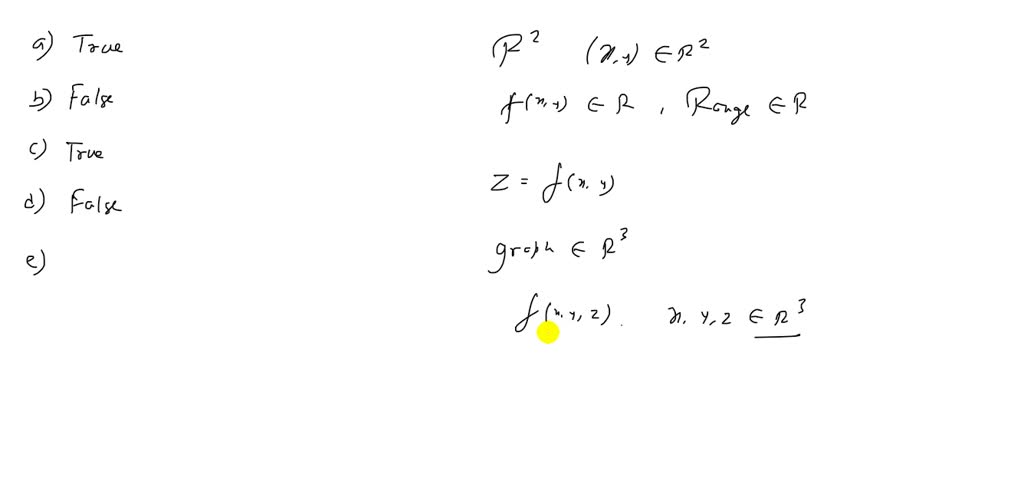 a) True
b) False
c) True
d) False
e)
R² (x,y) ∈ R²
f(x,y) ∈ R , Range ∈ R
z = f(x, y)
graph ∈ R³
f(x, y, z). x, y, z ∈ R³